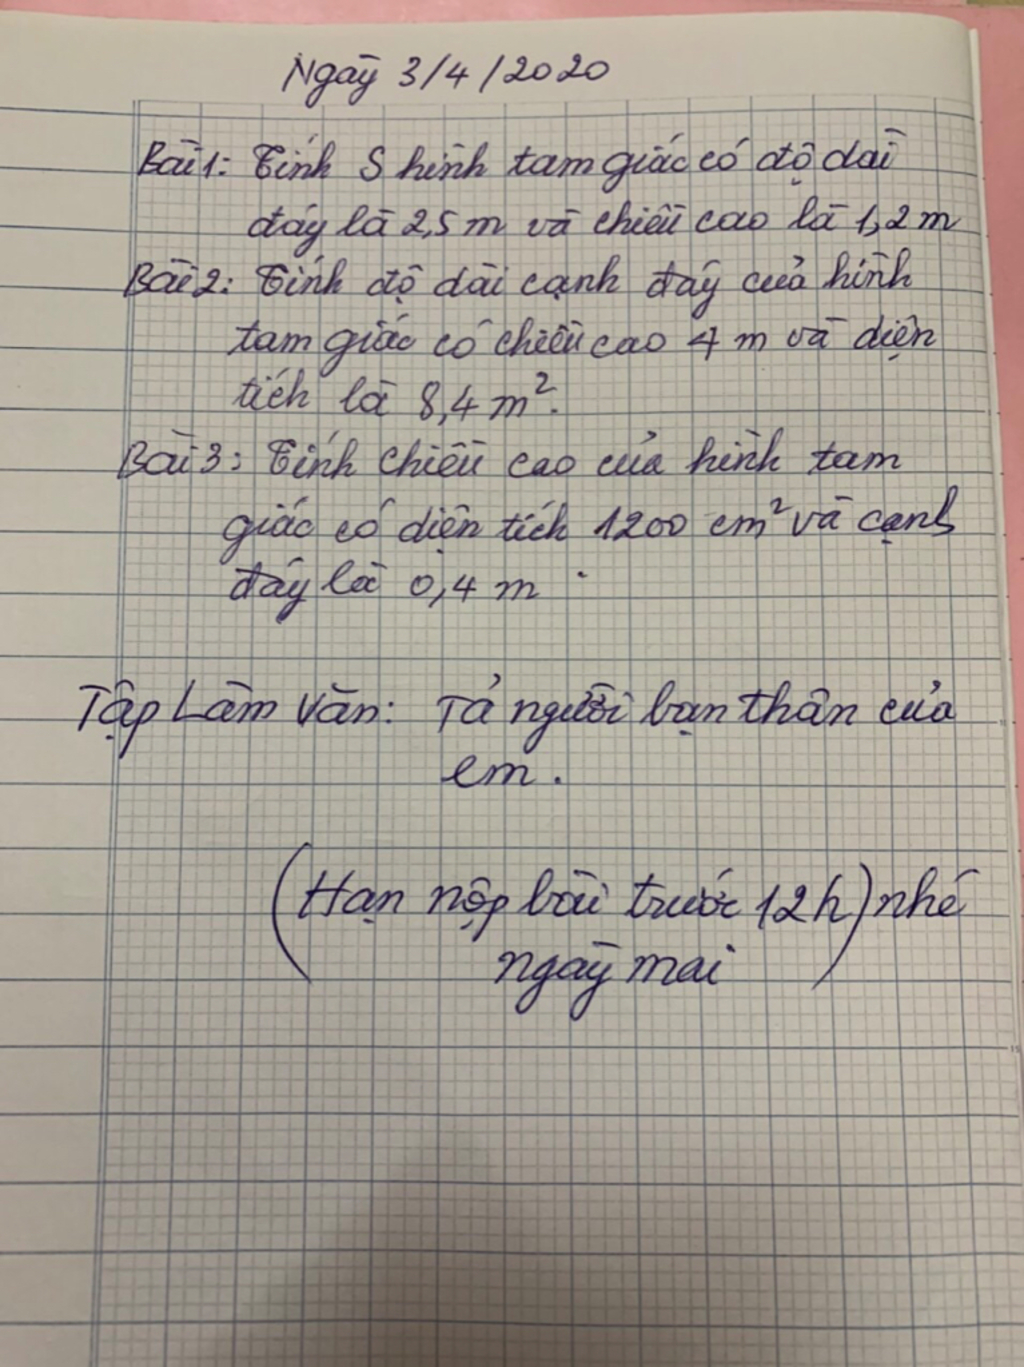 Ngày 3/4/2020
Bài 1: Tính S hình tam giác có độ dài
đáy là 2,5 m và chiều cao là 1,2 m
Bài 2: Tính độ dài cạnh đáy của hình
tam giác có chiều cao 4 m và diện
tích là 8,4 m².
Bài 3: Tính chiều cao của hình tam
giác có diện tích 1200 cm² và cạnh
đáy là 0,4 m.
Tập Làm Văn: Tả người bạn thân của
em.
(Hạn nộp bài trước 12h) nhé
ngày mai